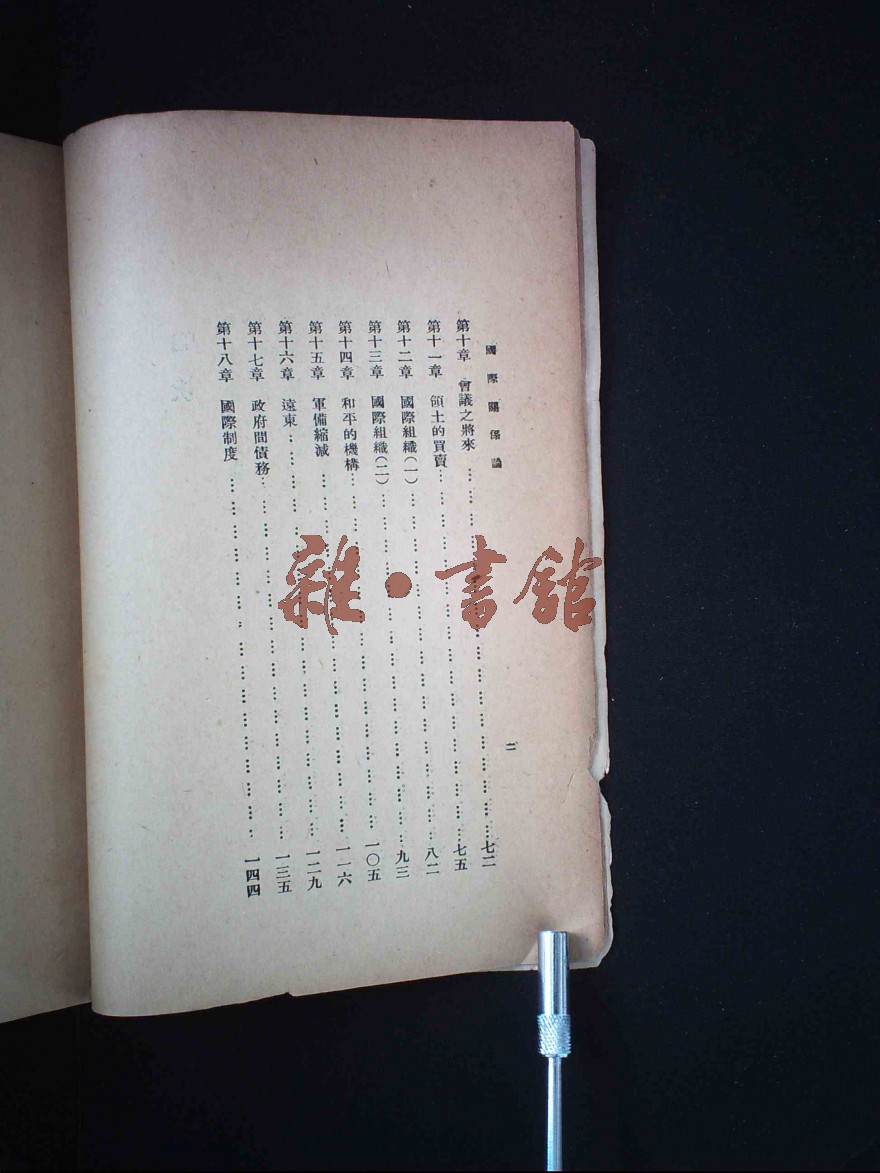 國際關係論
二
第十章 會議之將來……七二
第十一章 領土的買賣……七五
第十二章 國際組織(一)……八二
第十三章 國際組織(二)……九三
第十四章 和平的機構……一〇五
第十五章 軍備縮減……一一六
第十六章 遠東……一二九
第十七章 政府間債務……一三五
第十八章 國際制度……一四四
雜·書館